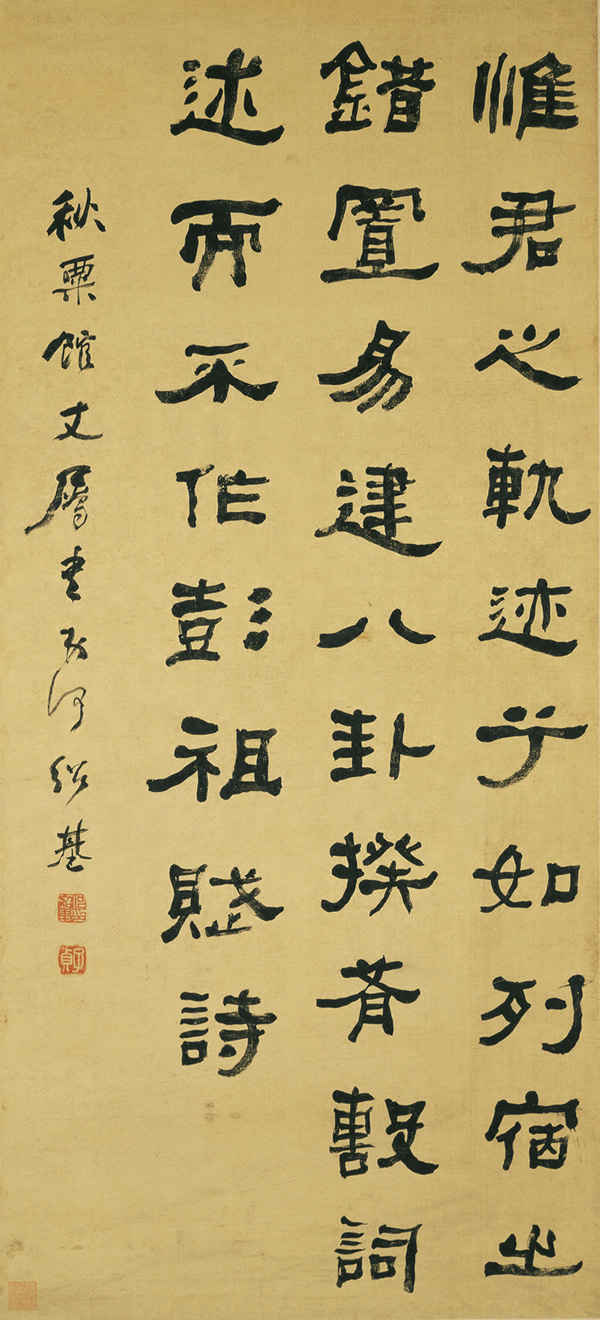 惟君之軌迹兮如列宿之
錯置易建八卦揆肴毄詞
述而不作彭祖賦詩
秋粟館丈屬書弟何紹基
子貞